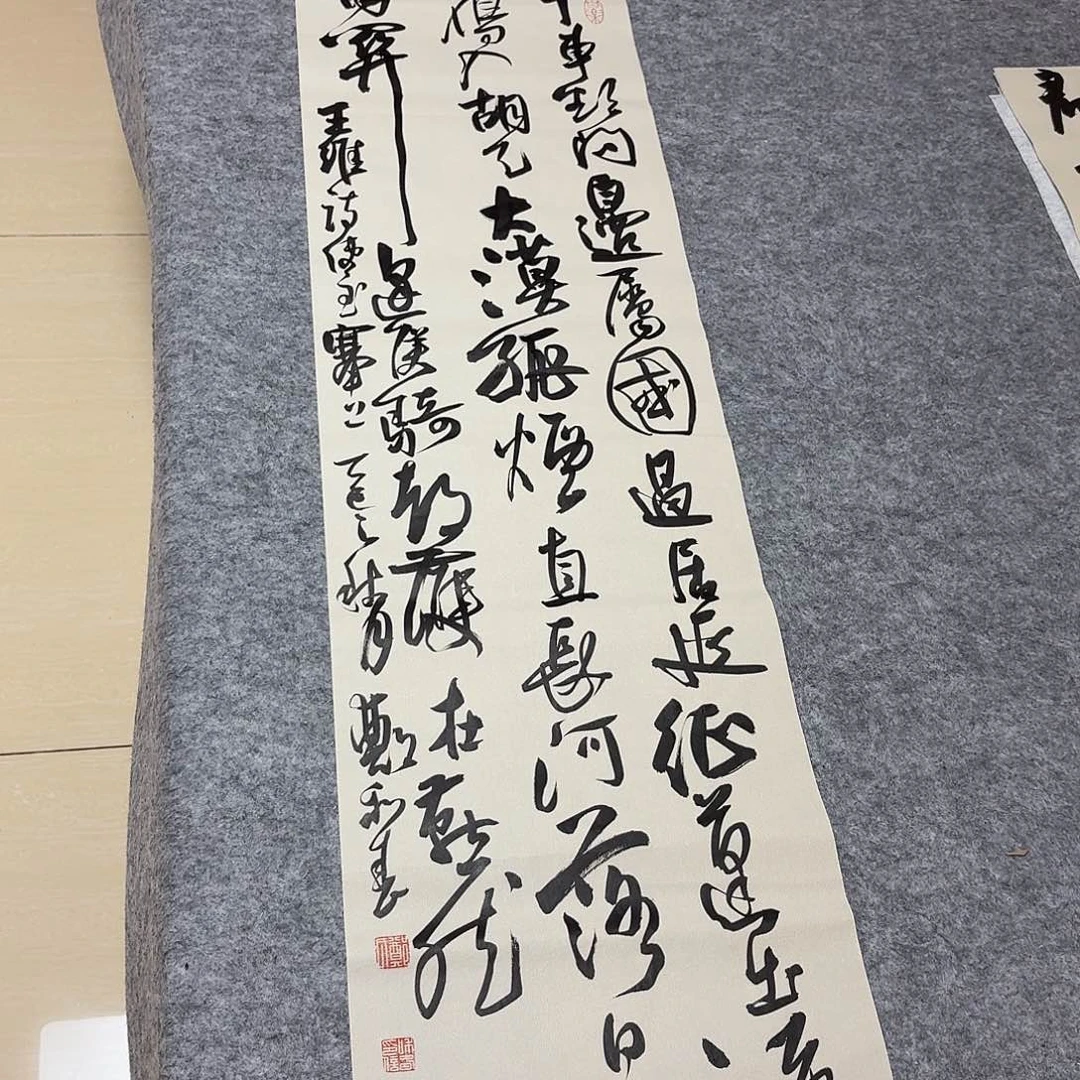 車欲問邊屬國過居延征蓬出
鴈入胡天大漠孤煙直長河落日
關逢候騎都護在燕然
王維詩使至塞上乙巳之秋月鄭和春